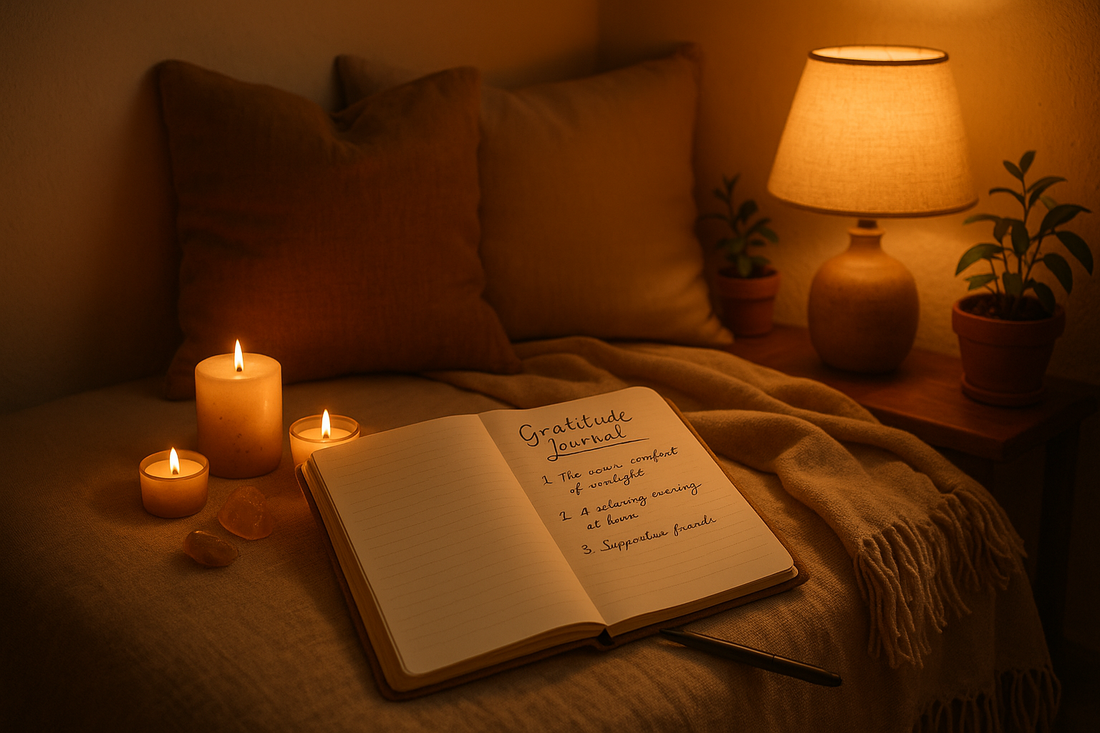 Gratitude
Journal
1. The your comfort
of wonlight
1. A selaring evering
at houn
3. Supportive frards